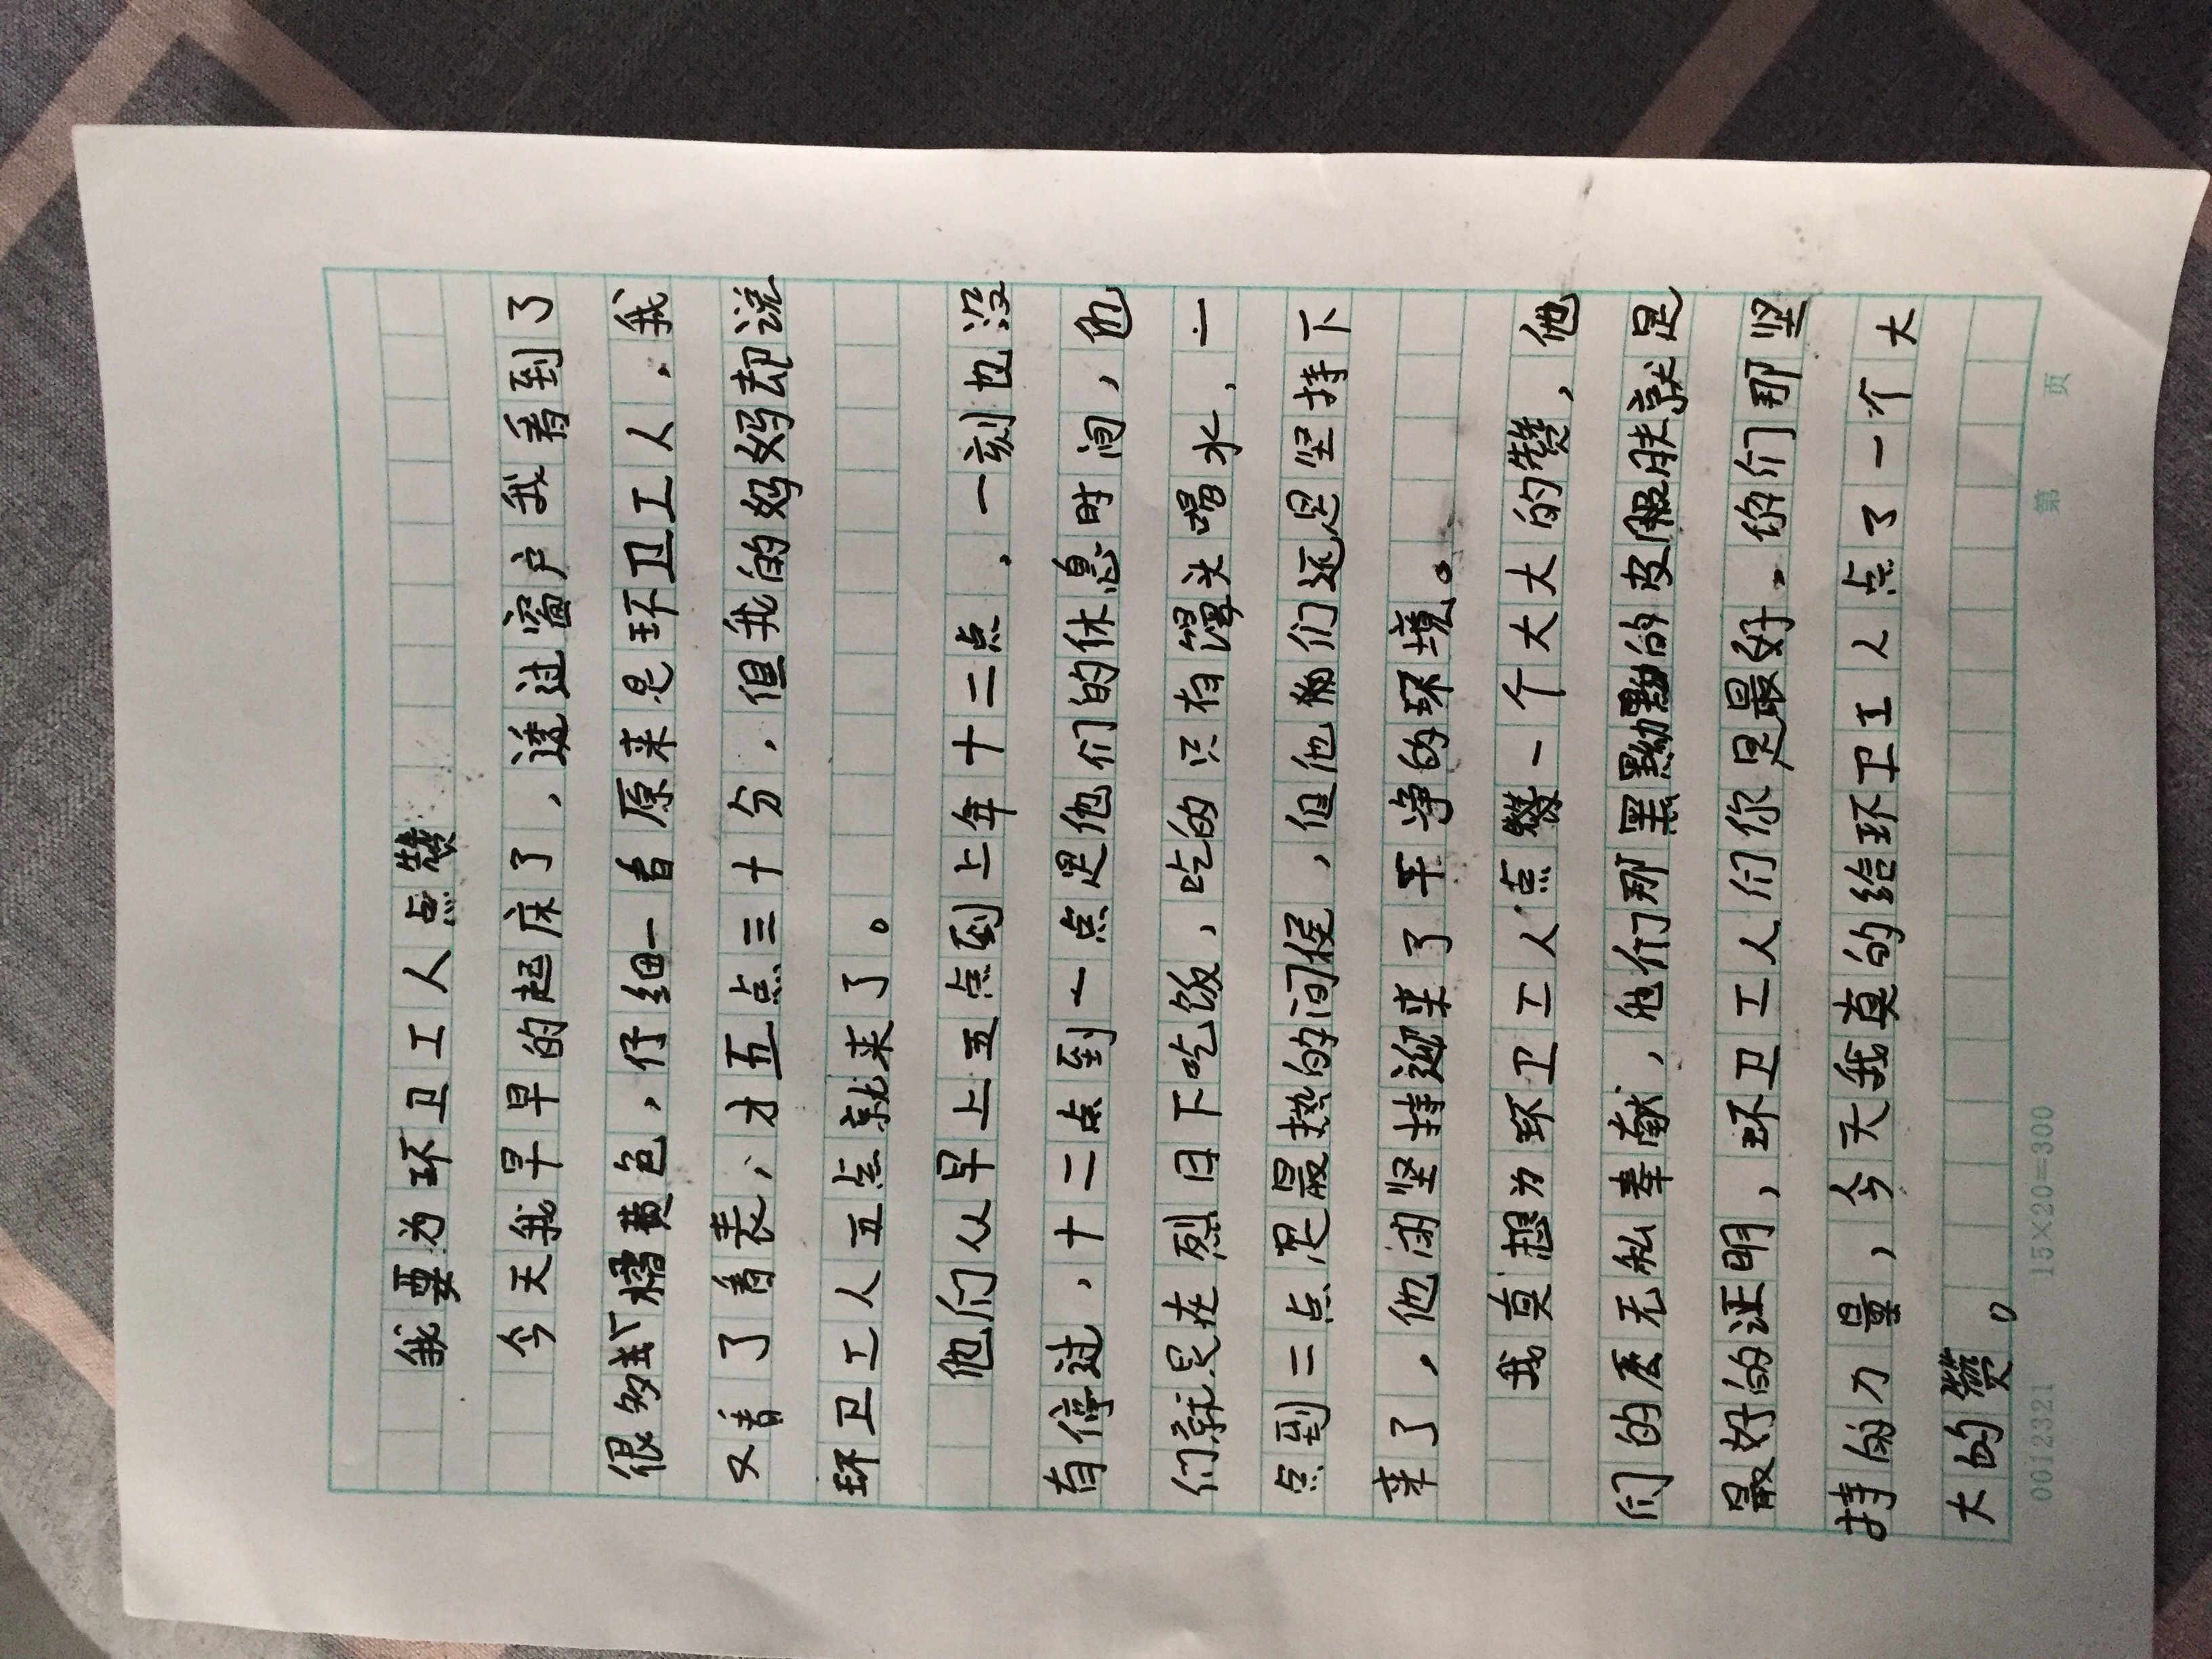 我要为环卫工人点赞
今天我早早的起床了，透过窗户我看到了
很多橘黄色，仔细一看原来是环卫工人，我
又看了看表，才五点三十分，但我的妈妈却说
环卫工人五点就来了。
他们从早上五点到上午十二点，一刻也没
有停过，十二点到一点是他们的休息时间，他
们就是在烈日下吃饭，吃的只有馒头喝水，一
点到二点是最热的间侯，但他们还是坚持下
来了，他的坚持迎来了干净的环境。
我真想为环卫工人点赞一个大大的赞，他
们的无私奉献，他们那黑黝黝的皮肤就是
最好的证明，环卫工人们你是最好，你们那坚
持的力量，今天我真的给环卫工人点了一个大
大的赞。
0012321 15×20=300 第 页